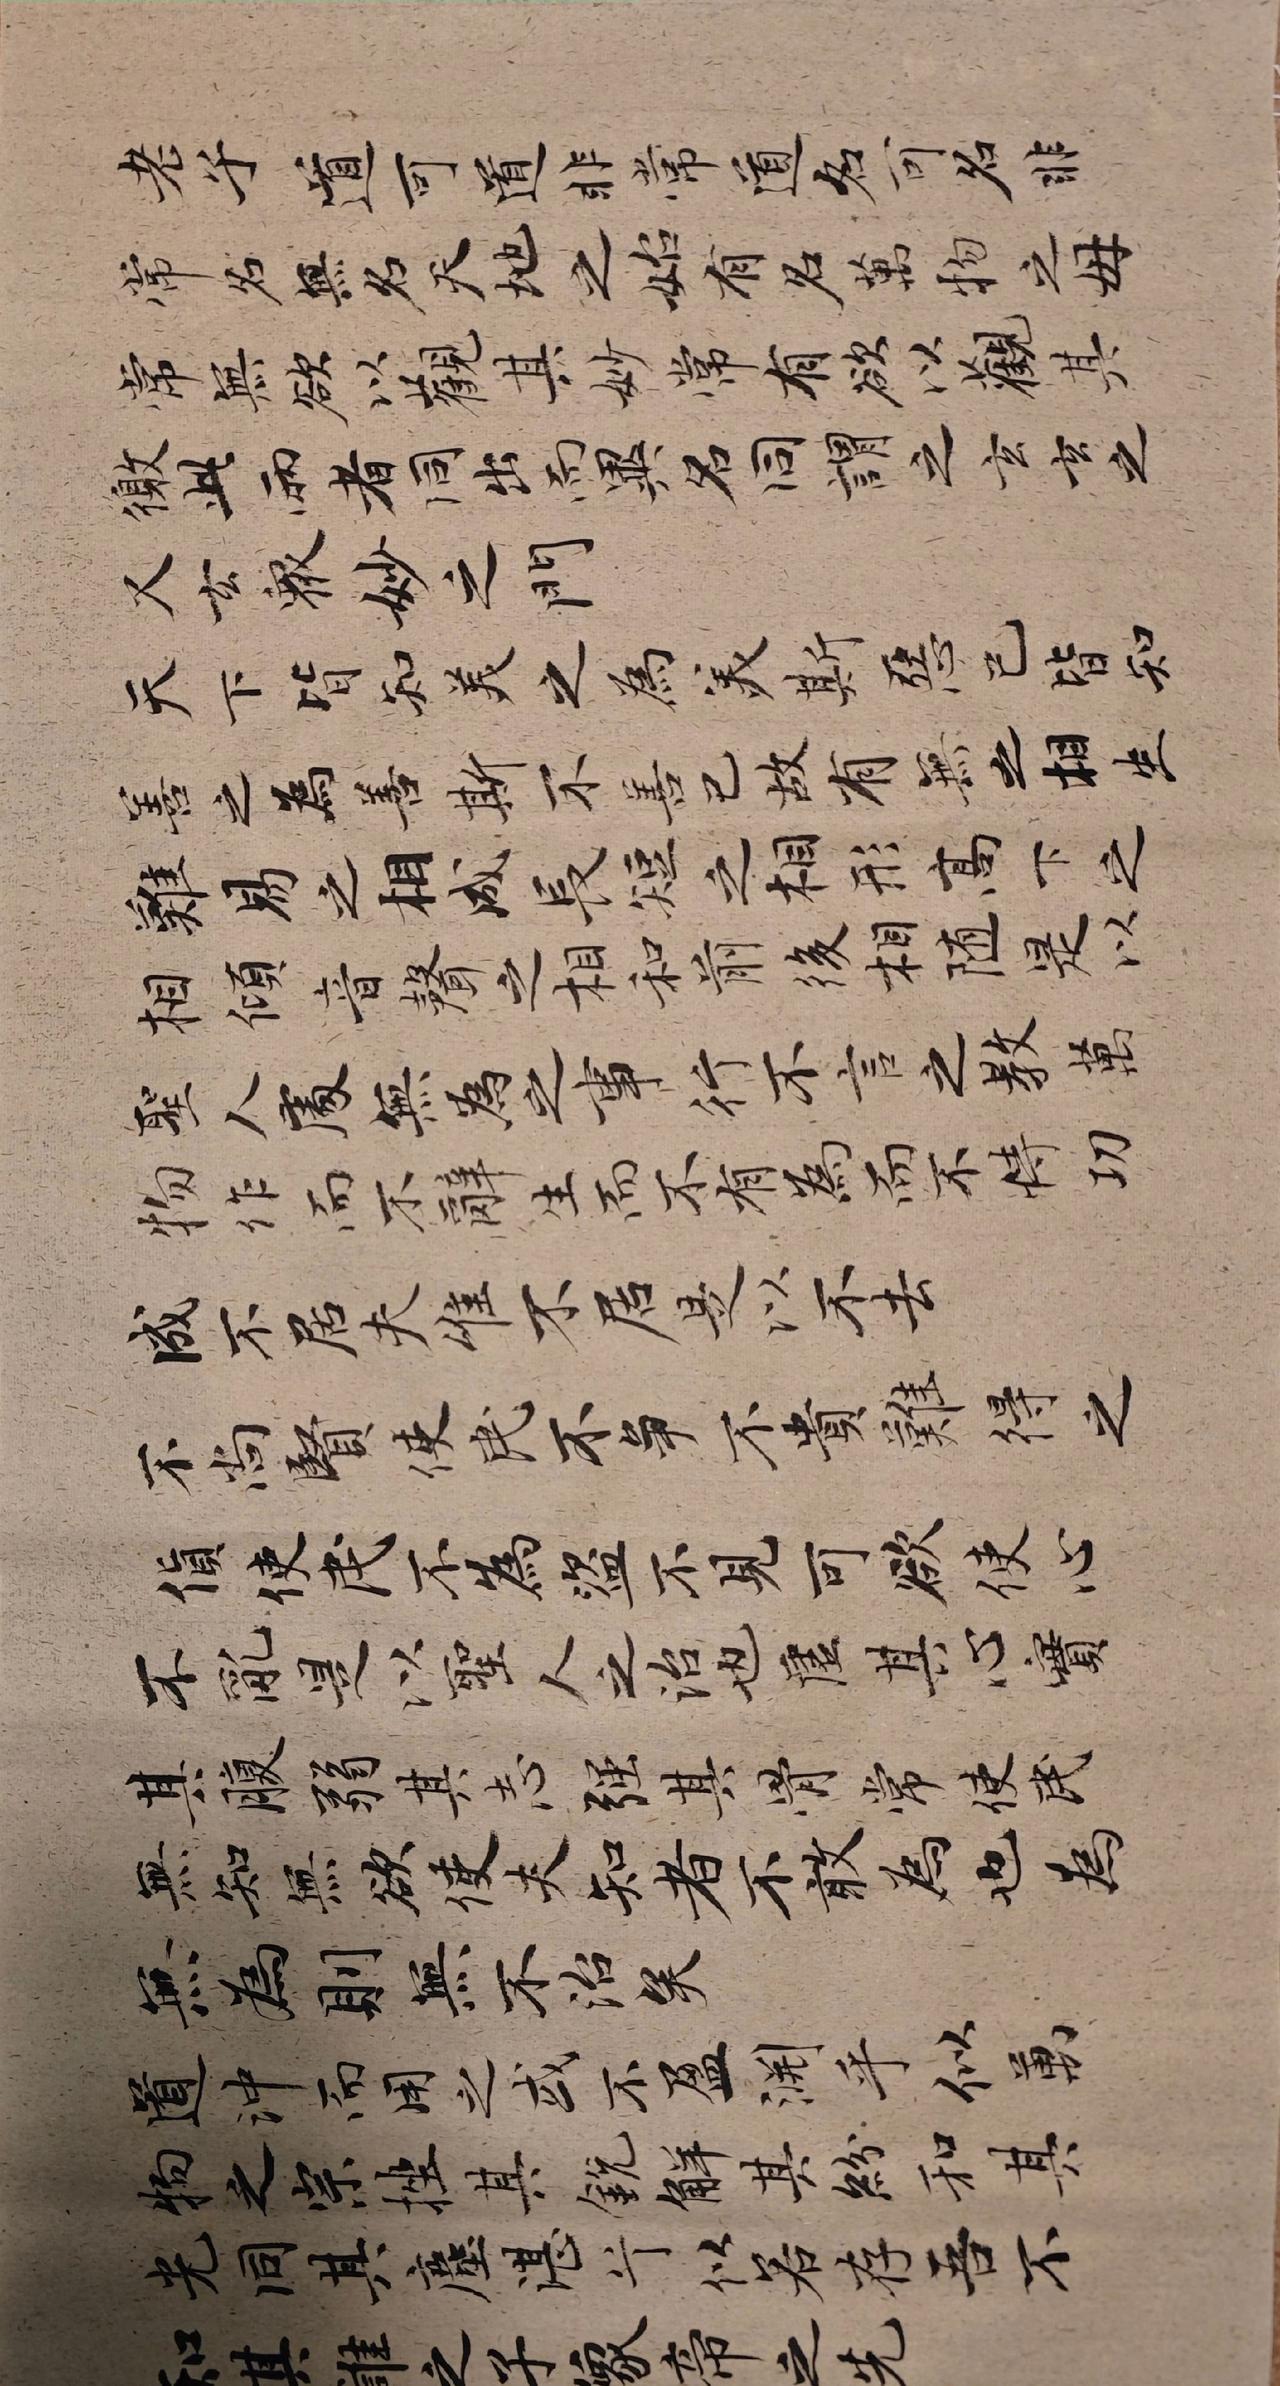 老子 道可道非常道名可名非
常名無名天地之始有名萬物之母
常無欲以觀其妙常有欲以觀其
徼此兩者同出而異名同謂之玄玄之
又玄衆妙之門
天下皆知美之為美斯惡已皆知
善之為善斯不善已故有無之相生
難易之相成長短之相形高下之
相傾音聲之相和前後相随是以
聖人處無為之事行不言之教萬
物作而不辭生而不有為而不恃功
成不居夫惟不居是以不去
不尚賢使民不争不貴難得之
貨使民不為盜不見可欲使心
不亂是以聖人之治也虛其心實
其腹弱其志强其骨常使民
無知無欲使夫知者不敢為也為
無為則無不治矣
道沖而用之或不盈淵乎似萬
物之宗挫其銳解其紛和其
光同其塵湛兮似若存吾不
知其誰之子象帝之先